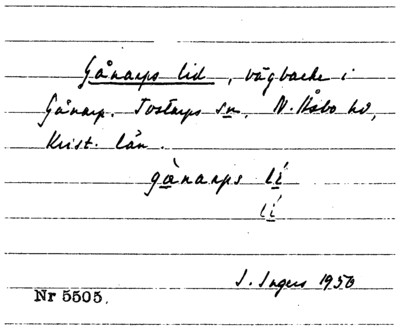 Gånarps lid, vägbacke i
Gånarp. Tostarps sn, N. Åsbo hd,
Krist. län.
gànarps lí
lí
I. Ingers 1950
Nr 5505.